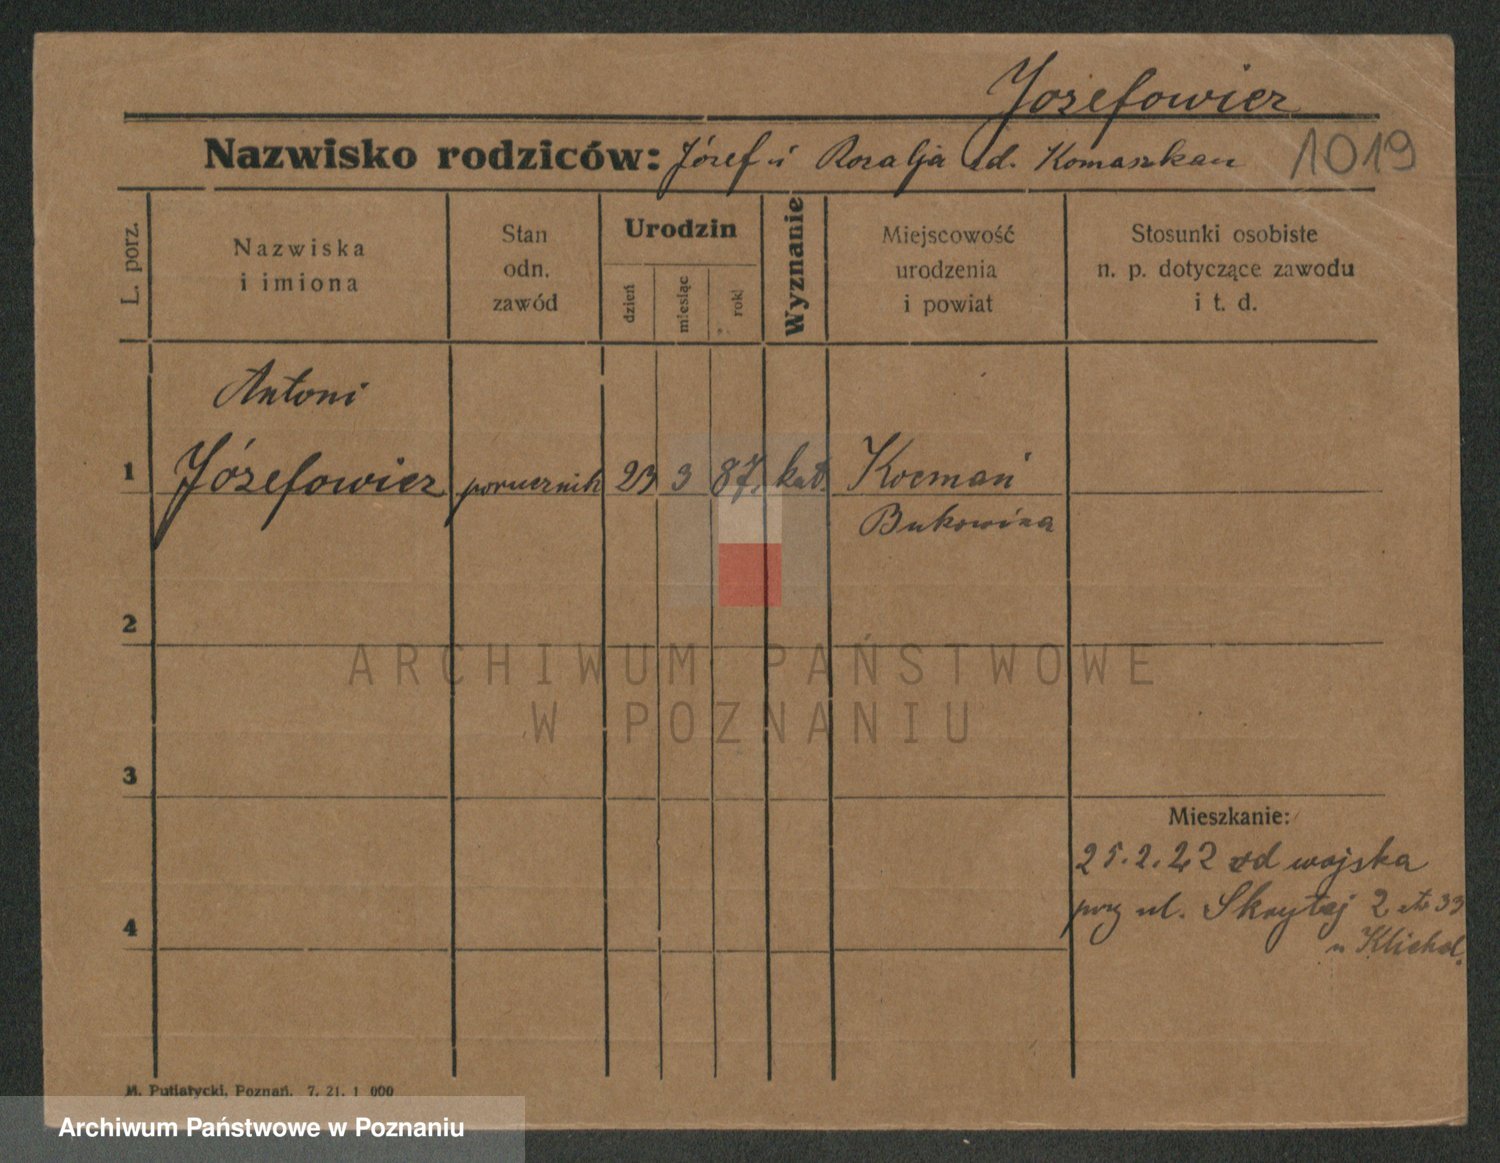 Józefowicz
Nazwisko rodziców: Józef i Rozalja d. Komaszkan 1019
L. porz.
Nazwiska
i imiona
Stan
odn.
zawód
Urodzin
dzień
miesiąc
rok
Wyznanie
Miejscowość
urodzenia
i powiat
Stosunki osobiste
n. p. dotyczące zawodu
i t. d.
Antoni
1 Józefowicz porucznik 23 3 87. kat. Kocmań
Bukowina
2
ARCHIWUM PAŃSTWOWE
W POZNANIU
3
Mieszkanie:
25.2.22 od wojska
przy ul. Skrytej 2 33
u Klichol.
4
M. Putiatycki, Poznań. 7. 21. 1 000
Archiwum Państwowe w Poznaniu